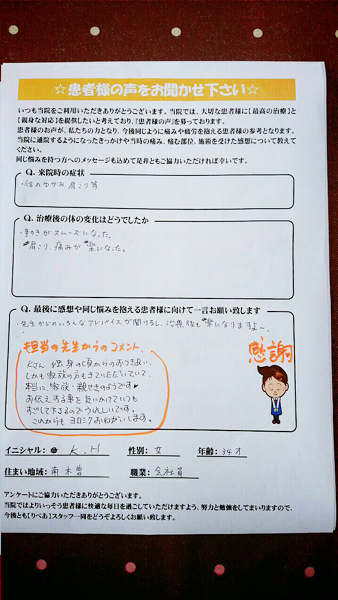 ☆患者様の声をお聞かせ下さい☆
いつも当院をご利用いただきありがとうございます。当院では、大切な患者様に【最高の治療】と
【親身な対応】を提供したいと考えており、『患者様の声』を募っております。
患者様のお声が、私たちの力となり、今後同じように痛みや疲労を抱える患者様の参考となります。
当院に通院するようになったきっかけや当時の痛み、痛む部位、施術を受けた感想について教えて
ください。
同じ悩みを持つ方へのメッセージも込めて是非ともご協力いただければ幸いです。
Q. 来院時の症状
・体のゆがみ、肩こり等
Q. 治療後の体の変化はどうでしたか
・動きがスムーズになった。
・肩こり、痛みが楽になった。
Q. 最後に感想や同じ悩みを抱える患者様に向けて一言お願い致します
先生からのいろんなアドバイスが聞けるし、治療後も楽になりますよ~
担当の先生からのコメント
感謝
Kさん 独身の頃からのおつきあい。
しかも家族の方もきていただいていて、
本当に家族・親せきのようです
お伝えする事を気にかけていつも
下さるのでうれしいです。
これからもヨロシクおねがいします。
イニシャル: K.H 性別: 女 年齢: 34才
住まい地域: 南木曽 職業: 会社員
アンケートにご協力いただきありがとうございます。
当院ではよりいっそう患者様に快適な毎日を過ごしていただけますよう、努力と勉強をしてまいりますので、
今後とも【りぺあ】スタッフ一同をどうぞよろしくお願い致します。